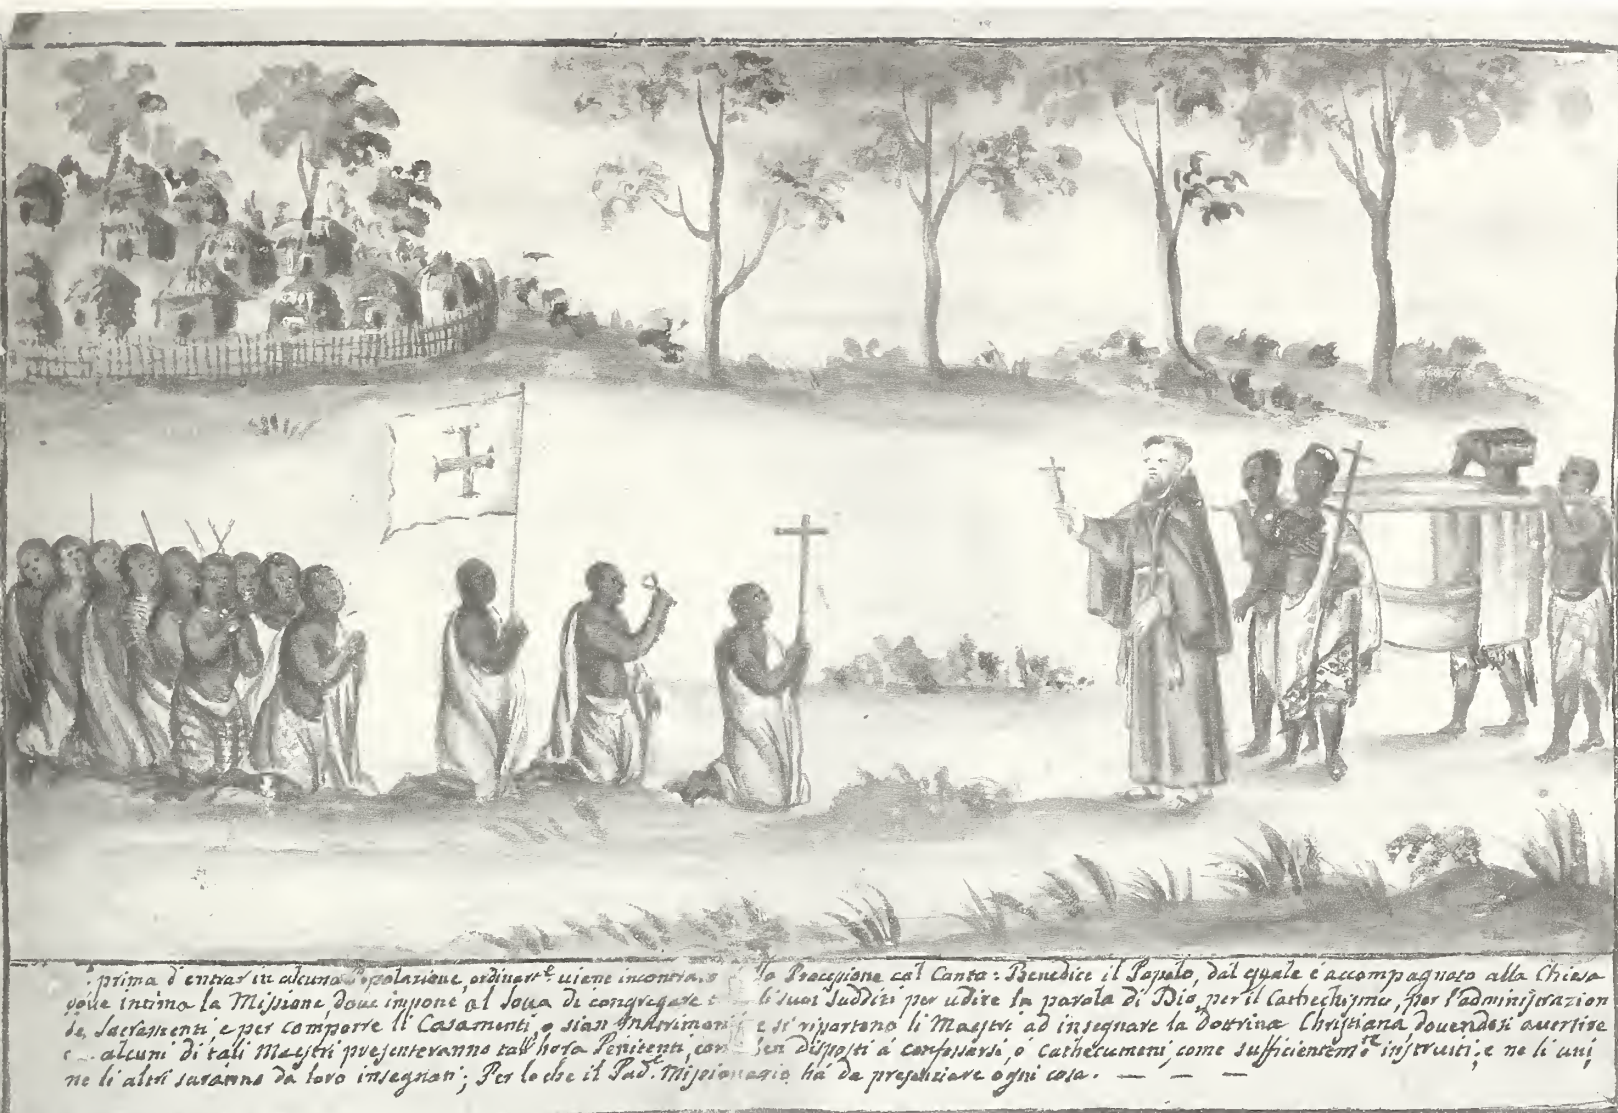 prima d'entrar in alcuna Popolazione ordinar.te uiene incontra o la Processione cal Canto: Benedice il Popolo, dal quale è accompagnato alla Chiesa
doue intima la Missione, doue impone al Soua di congregare li suoi sudditi per udire la parola di Dio, per il Cathechismo, per l'administrazion
de Sacramenti, e per comporre li Casamenti, o sian Matrimoni e si ripartono li Maestri ad insegnare la Dottrina Christiana, douendosi auertire
alcuni di tali Maestri presenteranno tall'hora Penitenti, ben disposti à confessarsi, ò Cathecumeni, come sufficientem.te instruiti; e ne li uni,
ne li altri saranno da loro insegnati; Per lo che il Pad.e Missionario hà da presenziare ogni cosa.